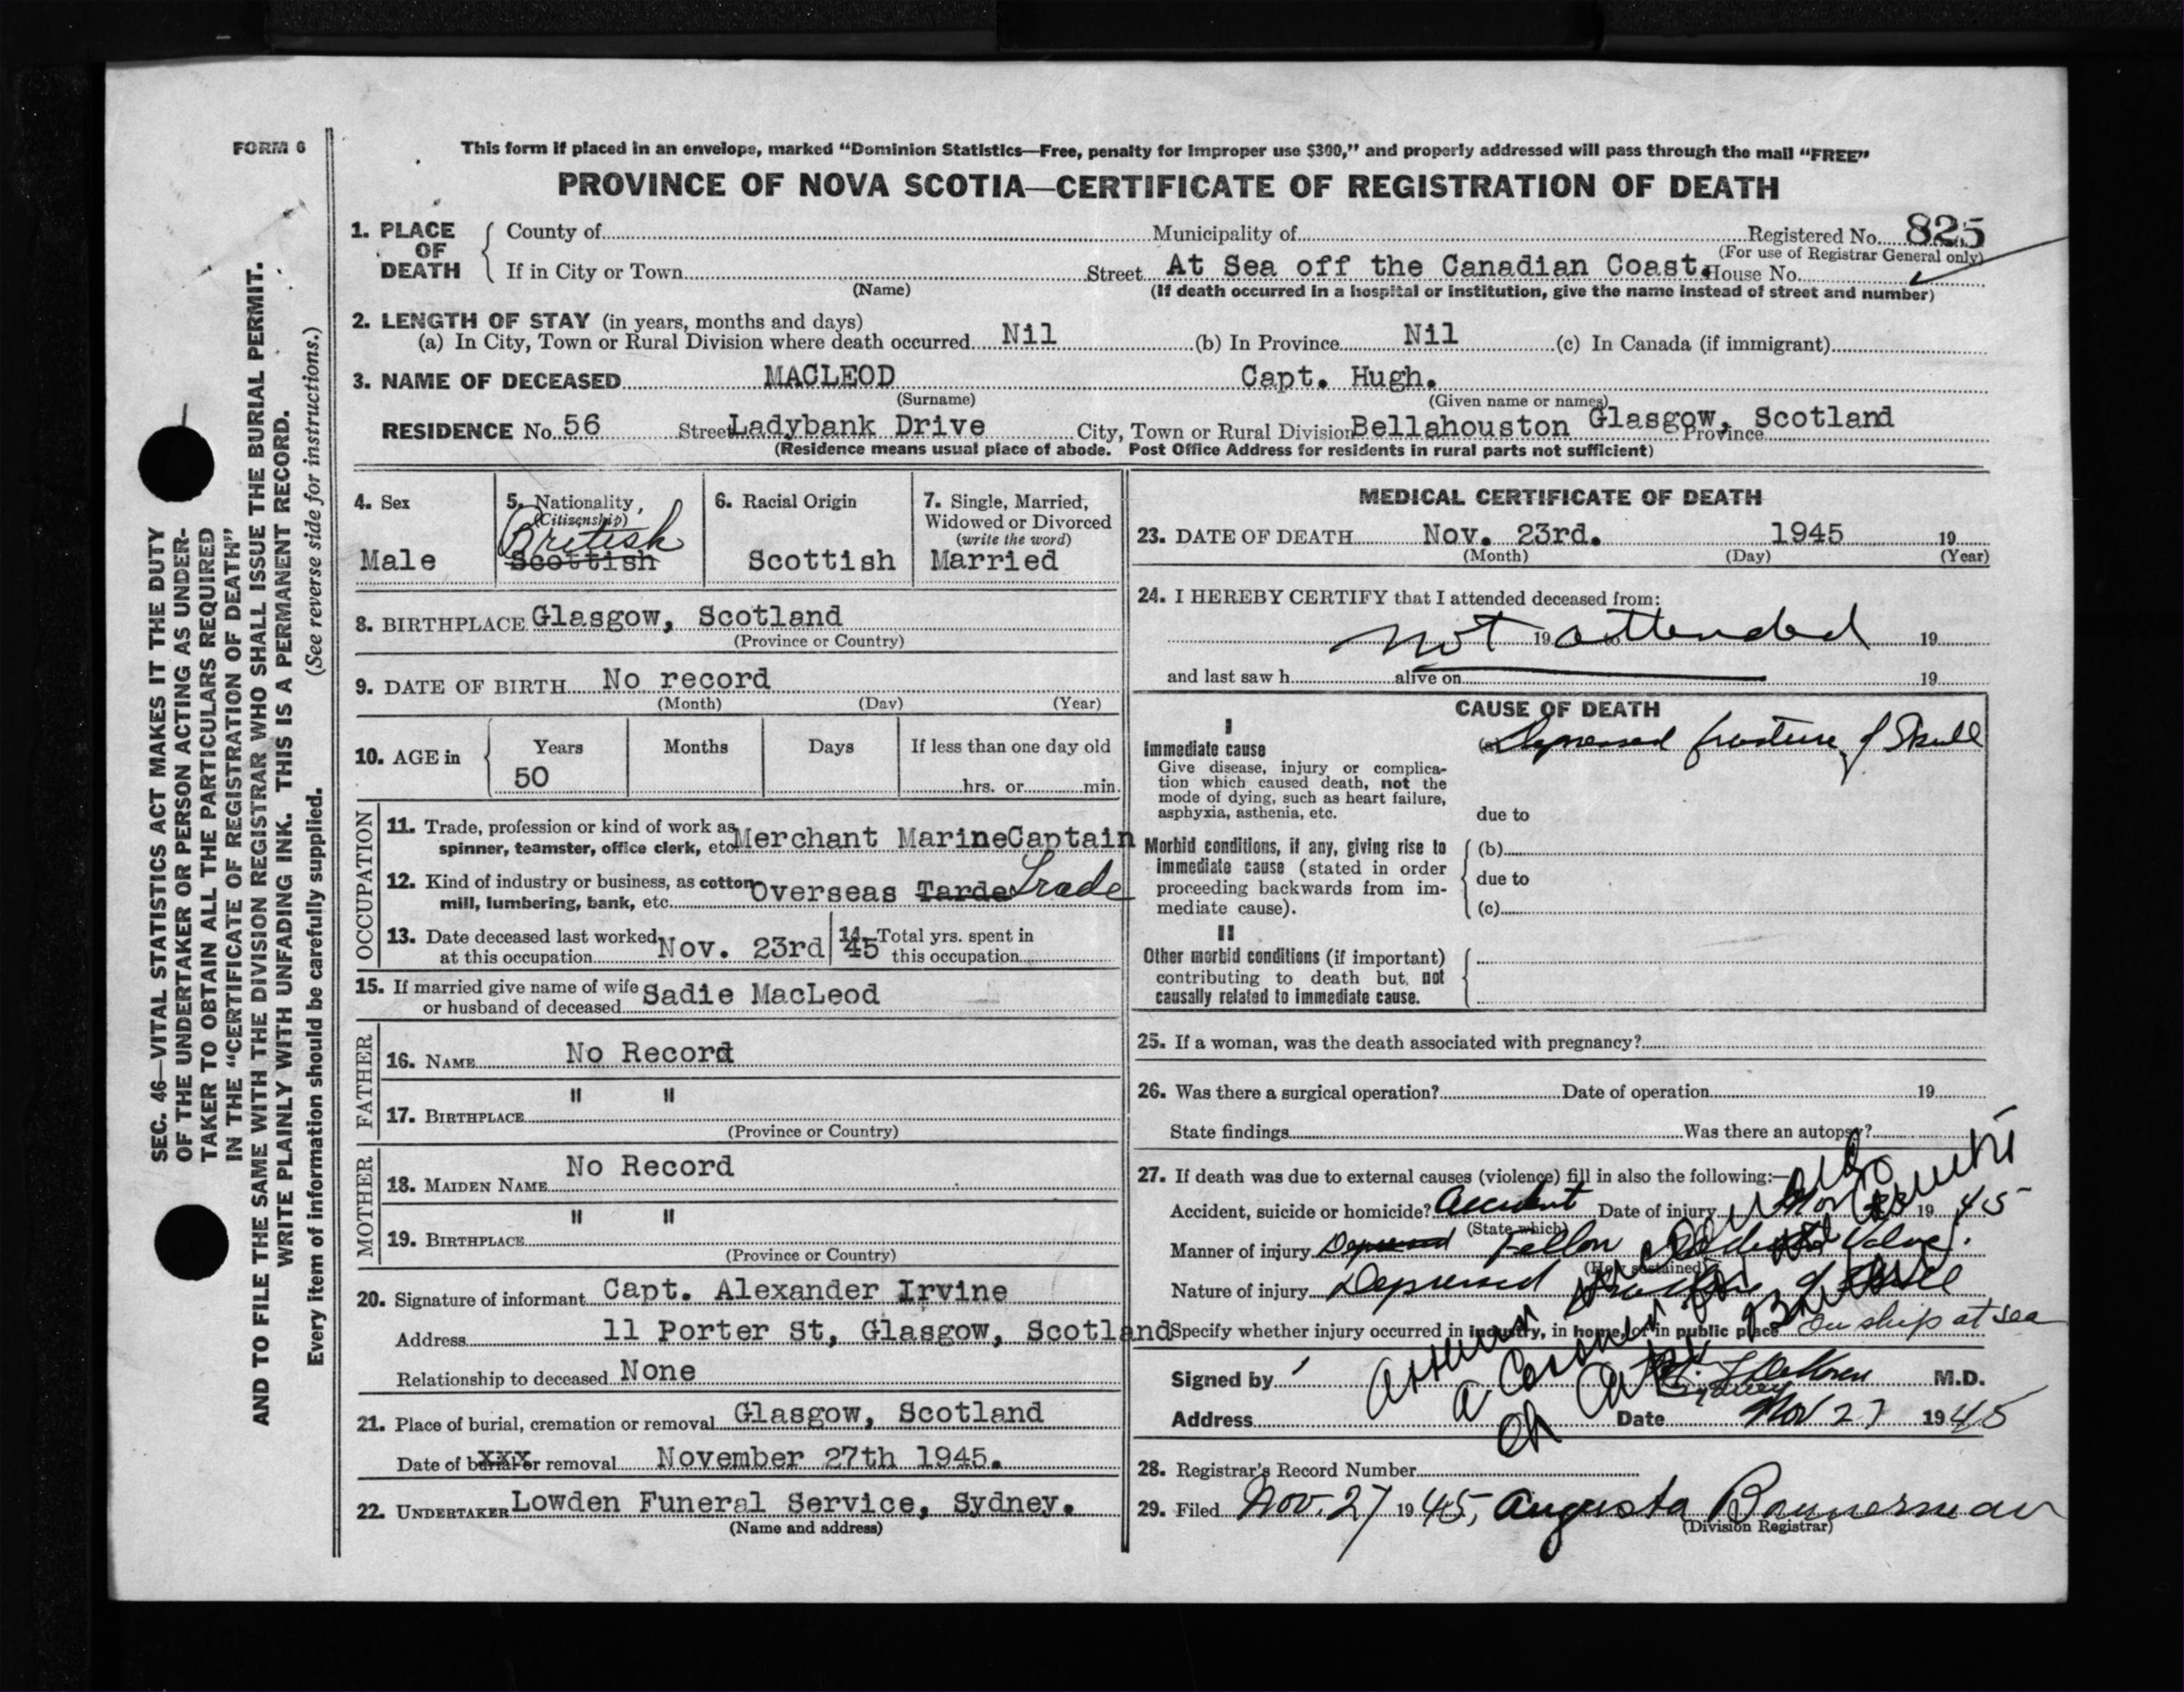 FORM 6
SEC. 46—VITAL STATISTICS ACT MAKES IT THE DUTY
OF THE UNDERTAKER OR PERSON ACTING AS UNDER-
TAKER TO OBTAIN ALL THE PARTICULARS REQUIRED
IN THE "CERTIFICATE OF REGISTRATION OF DEATH"
AND TO FILE THE SAME WITH THE DIVISION REGISTRAR WHO SHALL ISSUE THE BURIAL PERMIT.
WRITE PLAINLY WITH UNFADING INK. THIS IS A PERMANENT RECORD.
Every item of information should be carefully supplied. (See reverse side for instructions.)
This form if placed in an envelope, marked "Dominion Statistics—Free, penalty for improper use $300," and properly addressed will pass through the mail "FREE"
PROVINCE OF NOVA SCOTIA—CERTIFICATE OF REGISTRATION OF DEATH
1. PLACE OF DEATH
County of Municipality of Registered No. 825
(For use of Registrar General only)
If in City or Town Street At Sea off the Canadian Coast. House No.
(Name) (If death occurred in a hospital or institution, give the name instead of street and number)
2. LENGTH OF STAY (in years, months and days)
(a) In City, Town or Rural Division where death occurred Nil (b) In Province Nil (c) In Canada (if immigrant)
3. NAME OF DECEASED MACLEOD Capt. Hugh.
(Surname) (Given name or names)
RESIDENCE No. 56 Street Ladybank Drive City, Town or Rural Division Bellahouston Glasgow, Scotland Province
(Residence means usual place of abode. Post Office Address for residents in rural parts not sufficient)
4. Sex
Male
5. Nationality
(Citizenship)
British
Scottish
6. Racial Origin
Scottish
7. Single, Married,
Widowed or Divorced
(write the word)
Married
8. BIRTHPLACE Glasgow, Scotland
(Province or Country)
9. DATE OF BIRTH No record
(Month) (Day) (Year)
10. AGE in
Years Months Days If less than one day old
50 hrs. or min.
OCCUPATION
11. Trade, profession or kind of work as
spinner, teamster, office clerk, etc. Merchant MarineCaptain
12. Kind of industry or business, as cotton
mill, lumbering, bank, etc. Overseas Tarde Trade
13. Date deceased last worked
at this occupation Nov. 23rd 45
14. Total yrs. spent in
this occupation
15. If married give name of wife
or husband of deceased Sadie MacLeod
FATHER
16. NAME No Record
17. BIRTHPLACE " "
(Province or Country)
MOTHER
18. MAIDEN NAME No Record
19. BIRTHPLACE " "
(Province or Country)
20. Signature of informant Capt. Alexander Irvine
Address 11 Porter St, Glasgow, Scotland
Relationship to deceased None
21. Place of burial, cremation or removal Glasgow, Scotland
Date of burial or removal November 27th 1945.
xxx
22. UNDERTAKER Lowden Funeral Service, Sydney.
(Name and address)
MEDICAL CERTIFICATE OF DEATH
23. DATE OF DEATH Nov. 23rd. 1945 19
(Month) (Day) (Year)
24. I HEREBY CERTIFY that I attended deceased from:
not attended 19 to 19
and last saw h alive on 19
CAUSE OF DEATH
I
Immediate cause
Give disease, injury or complica-
tion which caused death, not the
mode of dying, such as heart failure,
asphyxia, asthenia, etc.
(a) Depressed fracture of Skull
due to
Morbid conditions, if any, giving rise to
immediate cause (stated in order
proceeding backwards from im-
mediate cause).
(b)
due to
(c)
II
Other morbid conditions (if important)
contributing to death but, not
causally related to immediate cause.
25. If a woman, was the death associated with pregnancy?
26. Was there a surgical operation? Date of operation 19
State findings Was there an autopsy?
27. If death was due to external causes (violence) fill in also the following:—
Accident, suicide or homicide? Accident Date of injury Nov 1945
(State which)
Manner of injury Depressed Fell on Valve.
(How sustained)
Nature of injury Depressed fracture of Skull
Specify whether injury occurred in industry, in home, or in public place On ship at sea
a Coroner for the
of Cape Breton
Signed by M.D.
Sydney
Address Date Nov 27 1945
28. Registrar's Record Number
29. Filed Nov. 27 1945, Augusta Bannerman
(Division Registrar)